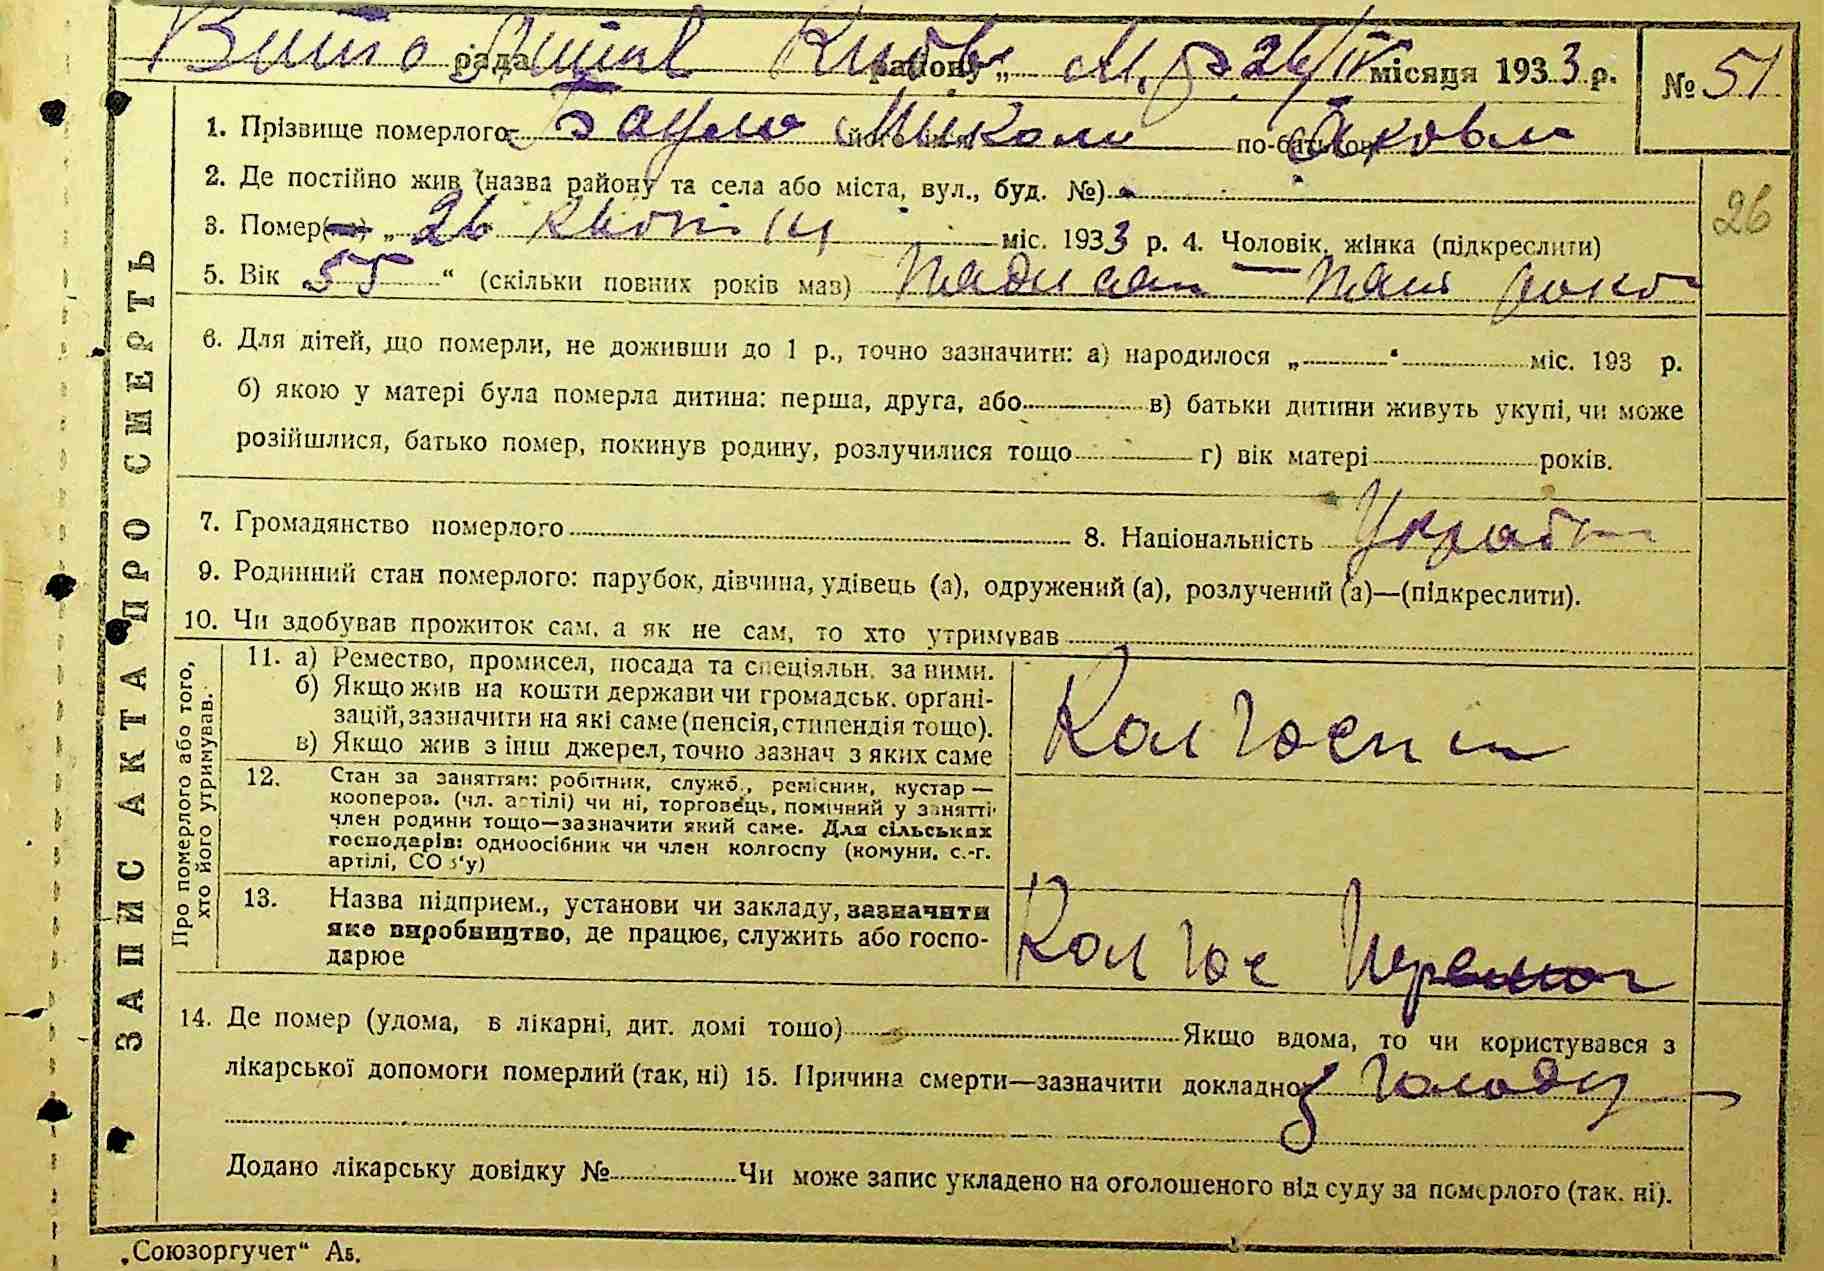 рада району „ 26/IV місяця 1933 р. № 51
1. Прізвище померлого Микола по-батькові Яковл
2. Де постійно жив (назва району та села або міста, вул., буд. №)
26
3. Помер „ 26 квітня міс. 1933 р. 4. Чоловік, жінка (підкреслити)
5. Вік 55 " (скільки повних років мав) пядисят – пять
6. Для дітей, що померли, не доживши до 1 р., точно зазначити: а) народилося „ " міс. 193 р.
б) якою у матері була померла дитина: перша, друга, або в) батьки дитини живуть укупі, чи може
розійшлися, батько помер, покинув родину, розлучилися тощо г) вік матері років.
7. Громадянство померлого 8. Національність
9. Родинний стан померлого: парубок, дівчина, удівець (а), одружений (а), розлучений (а)—(підкреслити).
10. Чи здобував прожиток сам, а як не сам, то хто утримував
ЗАПИС АКТА ПРО СМЕРТЬ
Про померлого або того,
хто його утримував.
11. а) Ремество, промисел, посада та спеціяльн. за ними.
б) Якщо жив на кошти держави чи громадськ. орґані-
зацій, зазначити на які саме (пенсія, стипендія тощо).
в) Якщо жив з інш джерел, точно зазнач з яких саме
Колгоспник
12. Стан за заняттям: робітник, служб., ремісник, кустар —
кооперов. (чл. артілі) чи ні, торговець, помічний у занятті
член родини тощо—зазначити який саме. Для сільських
господарів: одноосібник чи член колгоспу (комуни, с.-г.
артілі, СО з'у)
13. Назва підприєм., установи чи закладу, зазначити
яке виробництво, де працює, служить або госпо-
дарює
Колгос
14. Де помер (удома, в лікарні, дит. домі тощо) Якщо вдома, то чи користувався з
лікарської допомоги померлий (так, ні) 15. Причина смерти—зазначити докладно з голоду
Додано лікарську довідку № Чи може запис укладено на оголошеного від суду за померлого (так. ні).
„Союзоргучет" А5.